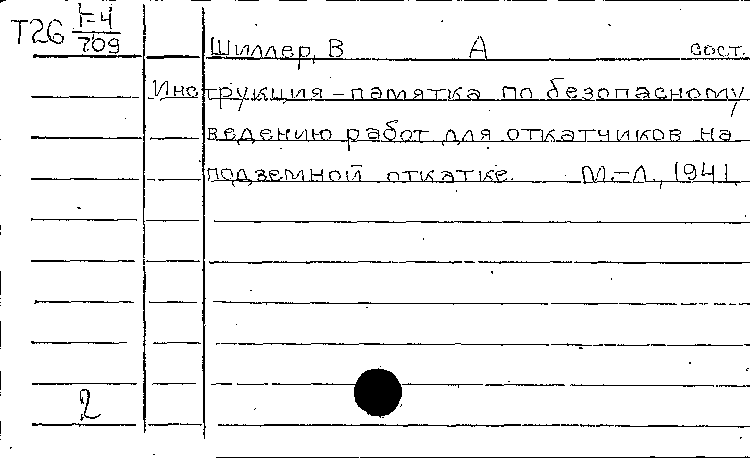 Т26 1-4/709
Шиллер, В А сост.
Инструкция-памятка по безопасному
ведению работ для откатчиков на
подземной откатке. М.-Л., 1941
2